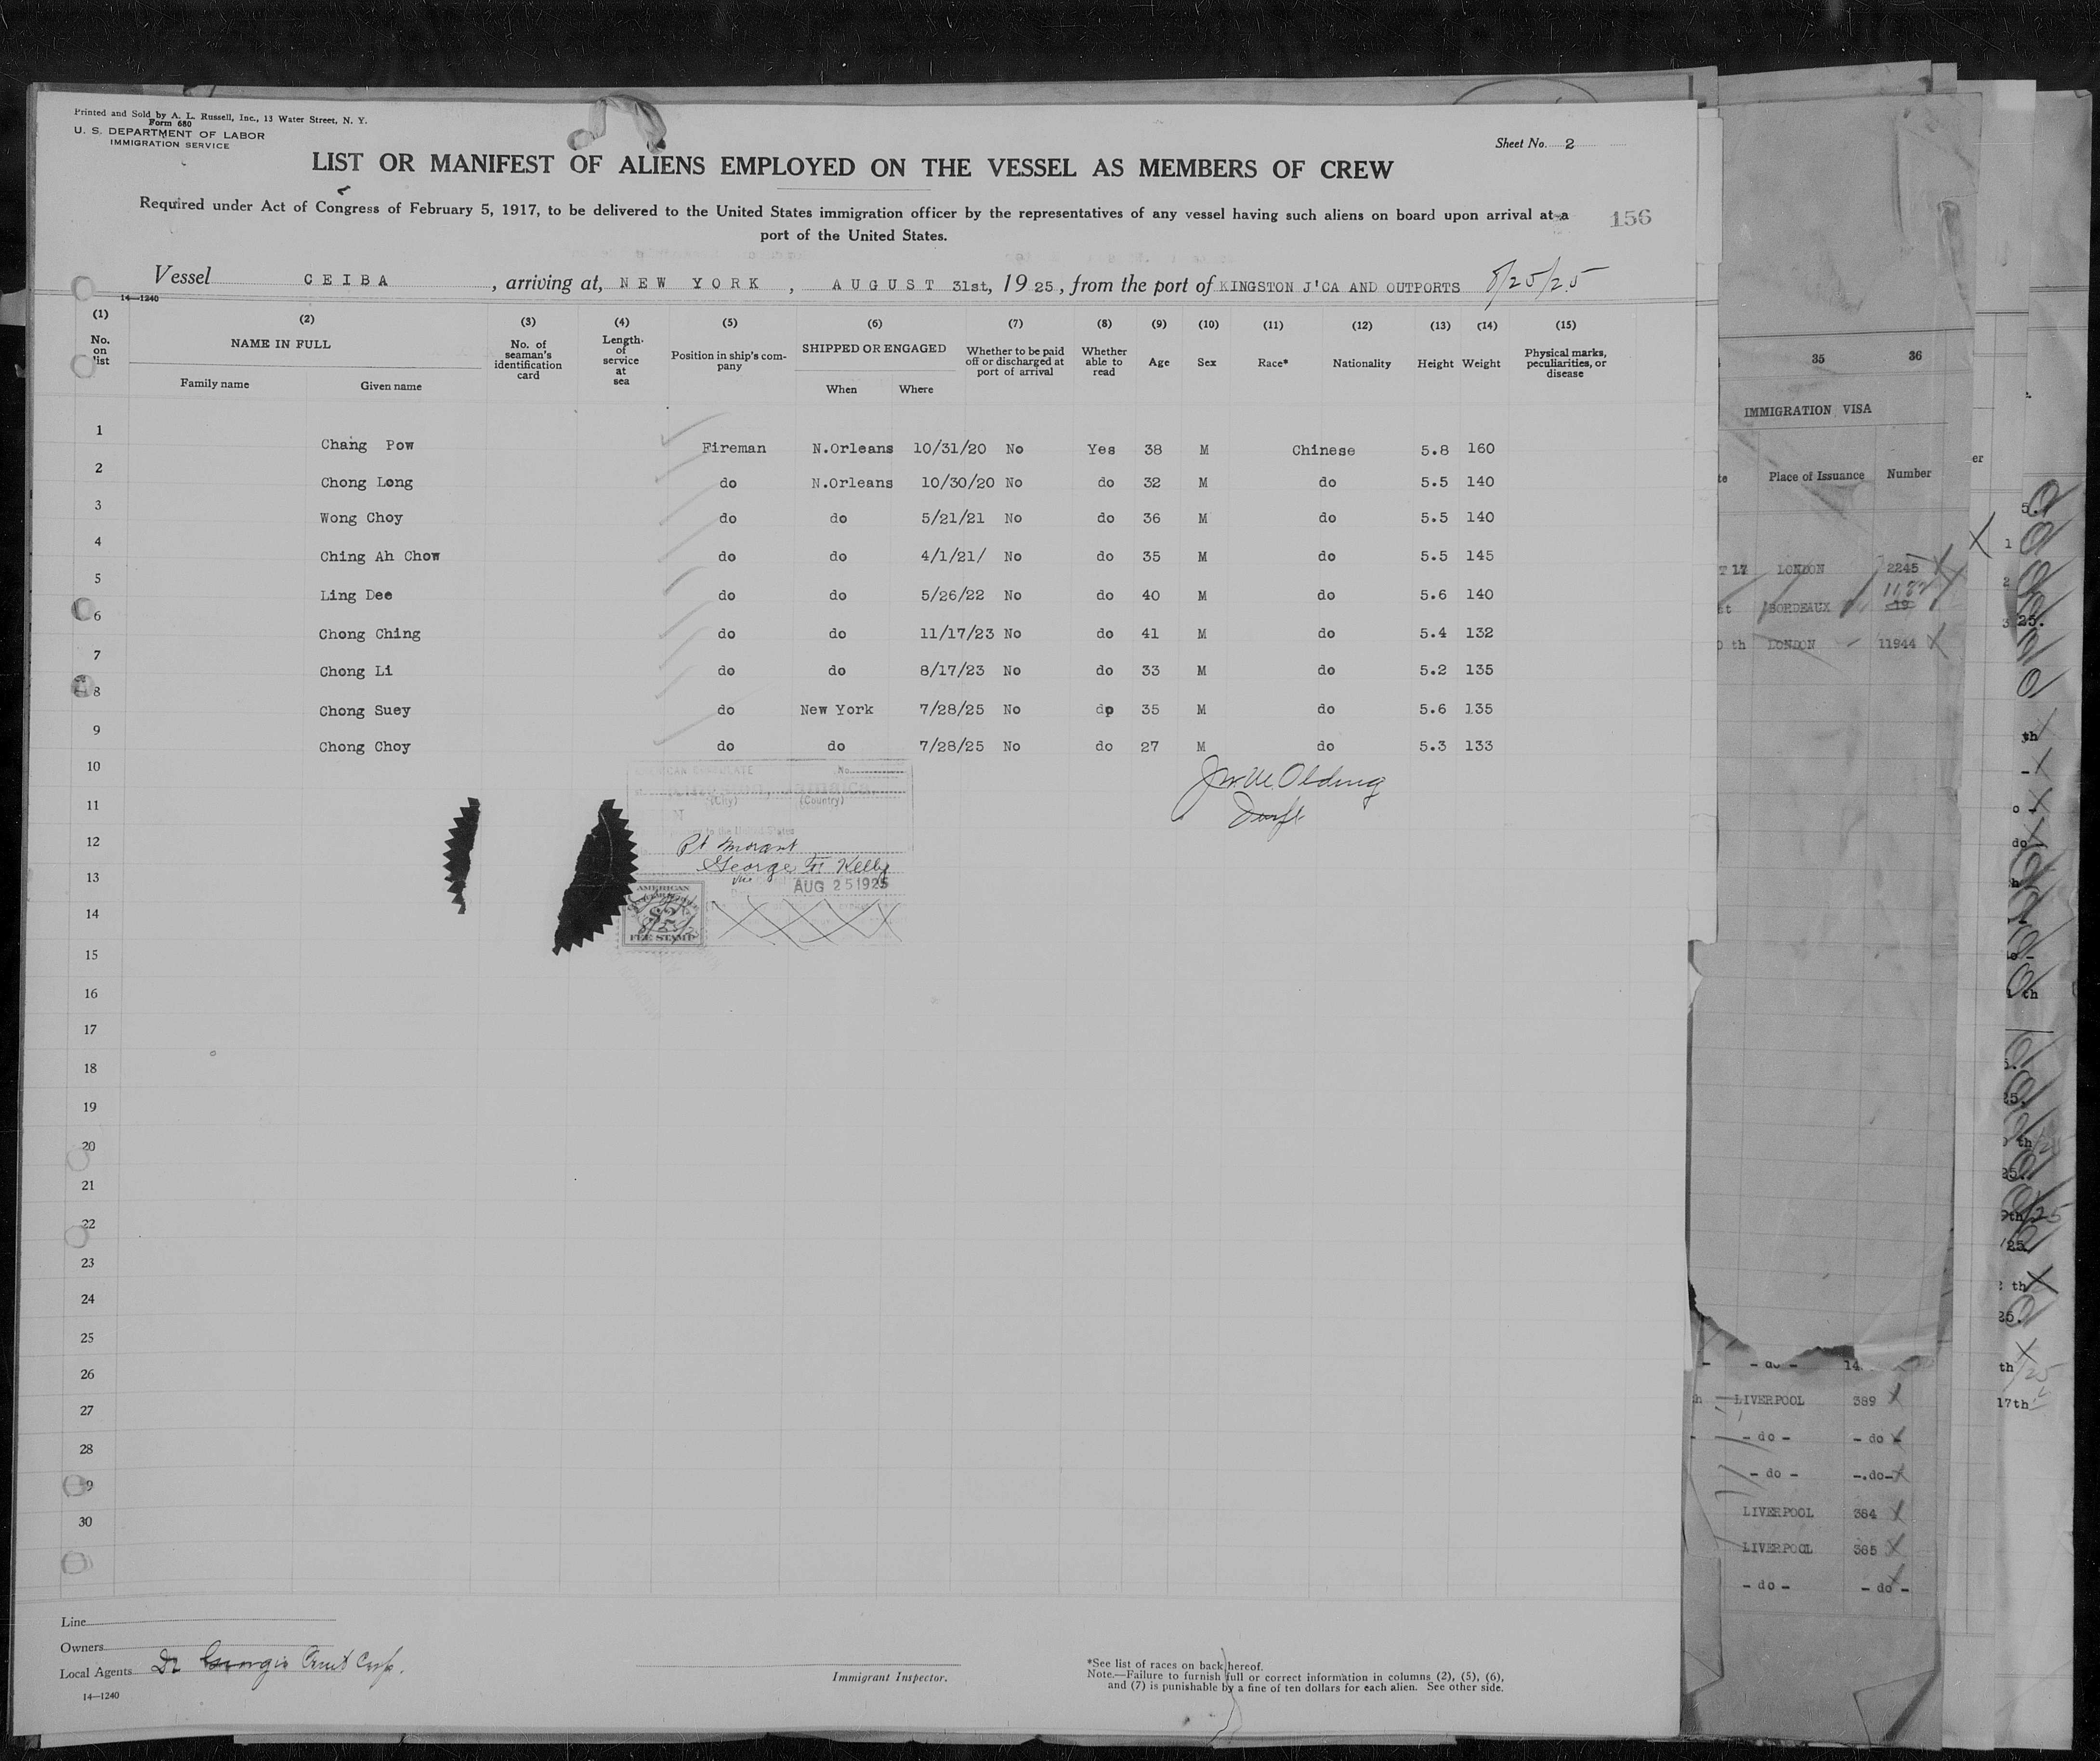 Printed and Sold by A. L. Russell, Inc., 13 Water Street, N. Y.
Form 680
U. S. DEPARTMENT OF LABOR
IMMIGRATION SERVICE
Sheet No. 2
LIST OR MANIFEST OF ALIENS EMPLOYED ON THE VESSEL AS MEMBERS OF CREW
Required under Act of Congress of February 5, 1917, to be delivered to the United States immigration officer by the representatives of any vessel having such aliens on board upon arrival at a
port of the United States.
156
Vessel CEIBA, arriving at, NEW YORK, AUGUST 31st, 1925, from the port of KINGSTON J'CA AND OUTPORTS 8/25/25
14—1240
(1) (2) (3) (4) (5) (6) (7) (8) (9) (10) (11) (12) (13) (14) (15)
No. on list NAME IN FULL Family name Given name No. of seaman's identification card Length of service at sea Position in ship's company SHIPPED OR ENGAGED When Where Whether to be paid off or discharged at port of arrival Whether able to read Age Sex Race* Nationality Height Weight Physical marks, peculiarities, or disease
1 Chang Pow Fireman N.Orleans 10/31/20 No Yes 38 M Chinese 5.8 160
2 Chong Long do N.Orleans 10/30/20 No do 32 M do 5.5 140
3 Wong Choy do do 5/21/21 No do 36 M do 5.5 140
4 Ching Ah Chow do do 4/1/21/ No do 35 M do 5.5 145
5 Ling Dee do do 5/26/22 No do 40 M do 5.6 140
6 Chong Ching do do 11/17/23 No do 41 M do 5.4 132
7 Chong Li do do 8/17/23 No do 33 M do 5.2 135
8 Chong Suey do New York 7/28/25 No do 35 M do 5.6 135
9 Chong Choy do do 7/28/25 No do 27 M do 5.3 133
10
11
12
13
14
15
16
17
18
19
20
21
22
23
24
25
26
27
28
29
30
No.
(City) (Country)
to the United States
Pt Morant
George F. Kelly
AUG 25 1925
AMERICAN
$2
FEE STAMP
Line
Owners
Local Agents Fruit Corp.
14—1240
Immigrant Inspector.
*See list of races on back hereof.
Note.—Failure to furnish full or correct information in columns (2), (5), (6),
and (7) is punishable by a fine of ten dollars for each alien. See other side.
35 36
IMMIGRATION VISA
Place of Issuance Number
17 LONDON 2245
BORDEAUX
th LONDON 11944
- do -
LIVERPOOL 389
- do - - do -
- do - -.do-
LIVERPOOL 384
LIVERPOOL 385
- do - - do -
17th